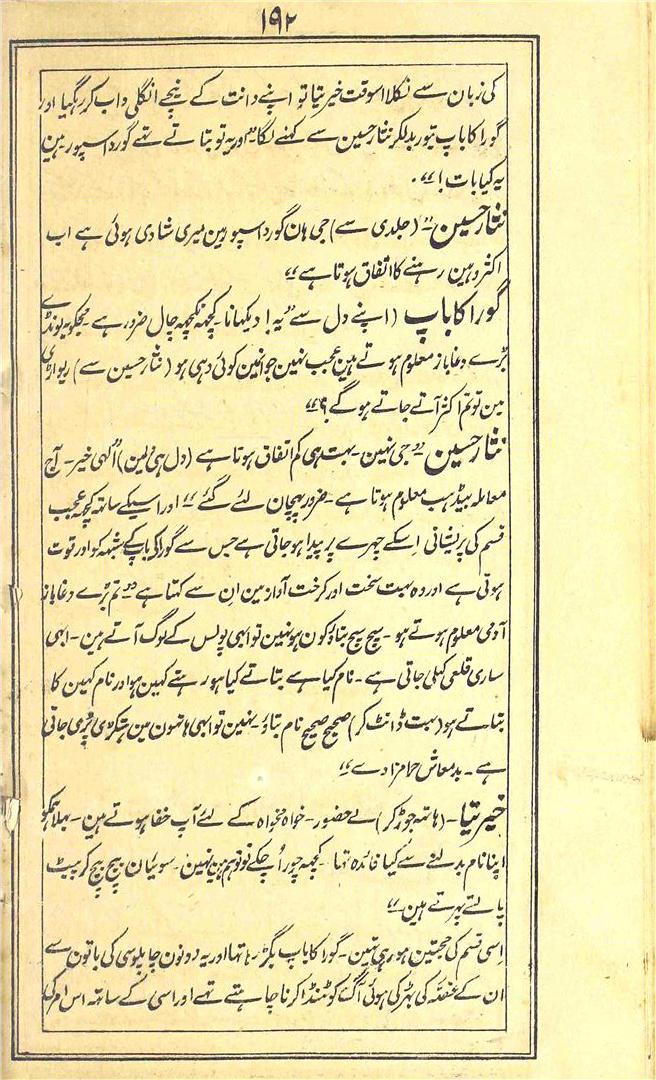 ۱۹۲
کی زبان سے نکلا اسوقت خیرتیا تو اپنے دانت کے نیچے انگلی داب کر رہگیا اور
گورا کا باپ تیور بدلکر نثار حسین سے کہنے لگا "اور یہ تو بتا تے تہے گورداسپور مین
یہ کیا بات !"۔
نثار حسین۔" (جلدی سے) جی ہان گورداسپور مین میری شادی ہوئی ہے اب
اکثر وہین رہنے کا اتفاق ہوتا ہے"
گورا کا باپ (اپنے دل سے "یہ! دیکھا نا۔ کچہہ نکچہہ چال ضرور ہے۔ مجکو یہ لونڈے
بڑے دغاباز معلوم ہوتے ہین عجب نہین جو انہین کوئی دہی ہو (نثار حسین سے) ریواڑی
مین تو تم اکثر آتے جاتے ہوگے؟"
نثار حسین "جی نہین۔ بہت ہی کم اتفاق ہوتا ہے (دل ہی دلمین) "الٰہی خیر۔ آج
معاملہ بیڈہب معلوم ہوتا ہے۔ ضرور پہچان لئے گئے" اور اسیکے ساتہہ کچہہ عجب
قسم کی پریشانی اسکے چہرے پر پیدا ہوجاتی ہے جس سے گورا کی باپ کے شبہہ کو اور قوت
ہوتی ہے اور وہ بہت سخت اور کرخت آواز مین ان سے کہتا ہے "تم بڑے دغاباز
آدمی معلوم ہوتے ہو۔ سچ سچ بتاؤ کون ہو نہین تو ابہی پولس کے لوگ آتے ہین۔ ابہی
ساری قلعی کہلی جاتی ہے۔ نام کیا ہے بتاتے کیا ہو رہتے کہین ہو اور نام کہین کا
بتاتے ہو (بہت ڈانٹ کر) صحیح صحیح نام بتاؤ۔ نہین تو ابہی ہاتہون مین ہتکڑی پڑی جاتی
ہے۔ بدمعاش حرامزادے"
خیرتیا۔ (ہاتہہ جوڑکر) لے حضور۔ خواہ مخواہ کے لئے آپ خفا ہوتے ہین۔ بہلا ہمکو
اپنا نام بدلنے سے کیا فائدہ تہا۔ کچہہ چور اُچکے تو ہم ہین نہین۔ سوئیان بیچ بیچ کر پیٹ
پالتے پہرتے ہین"
اِسی قسم کی حجتین ہو رہی تہین۔ گورا کا باپ بگڑ رہا تہا اور یہ دونون چاپلوسی کی باتون سے
ان کے غصّہ کی بہڑکی ہوئی آگ کو ٹہنڈا کرنا چاہتے تہے اور اسی کے ساتہہ اس امر کی